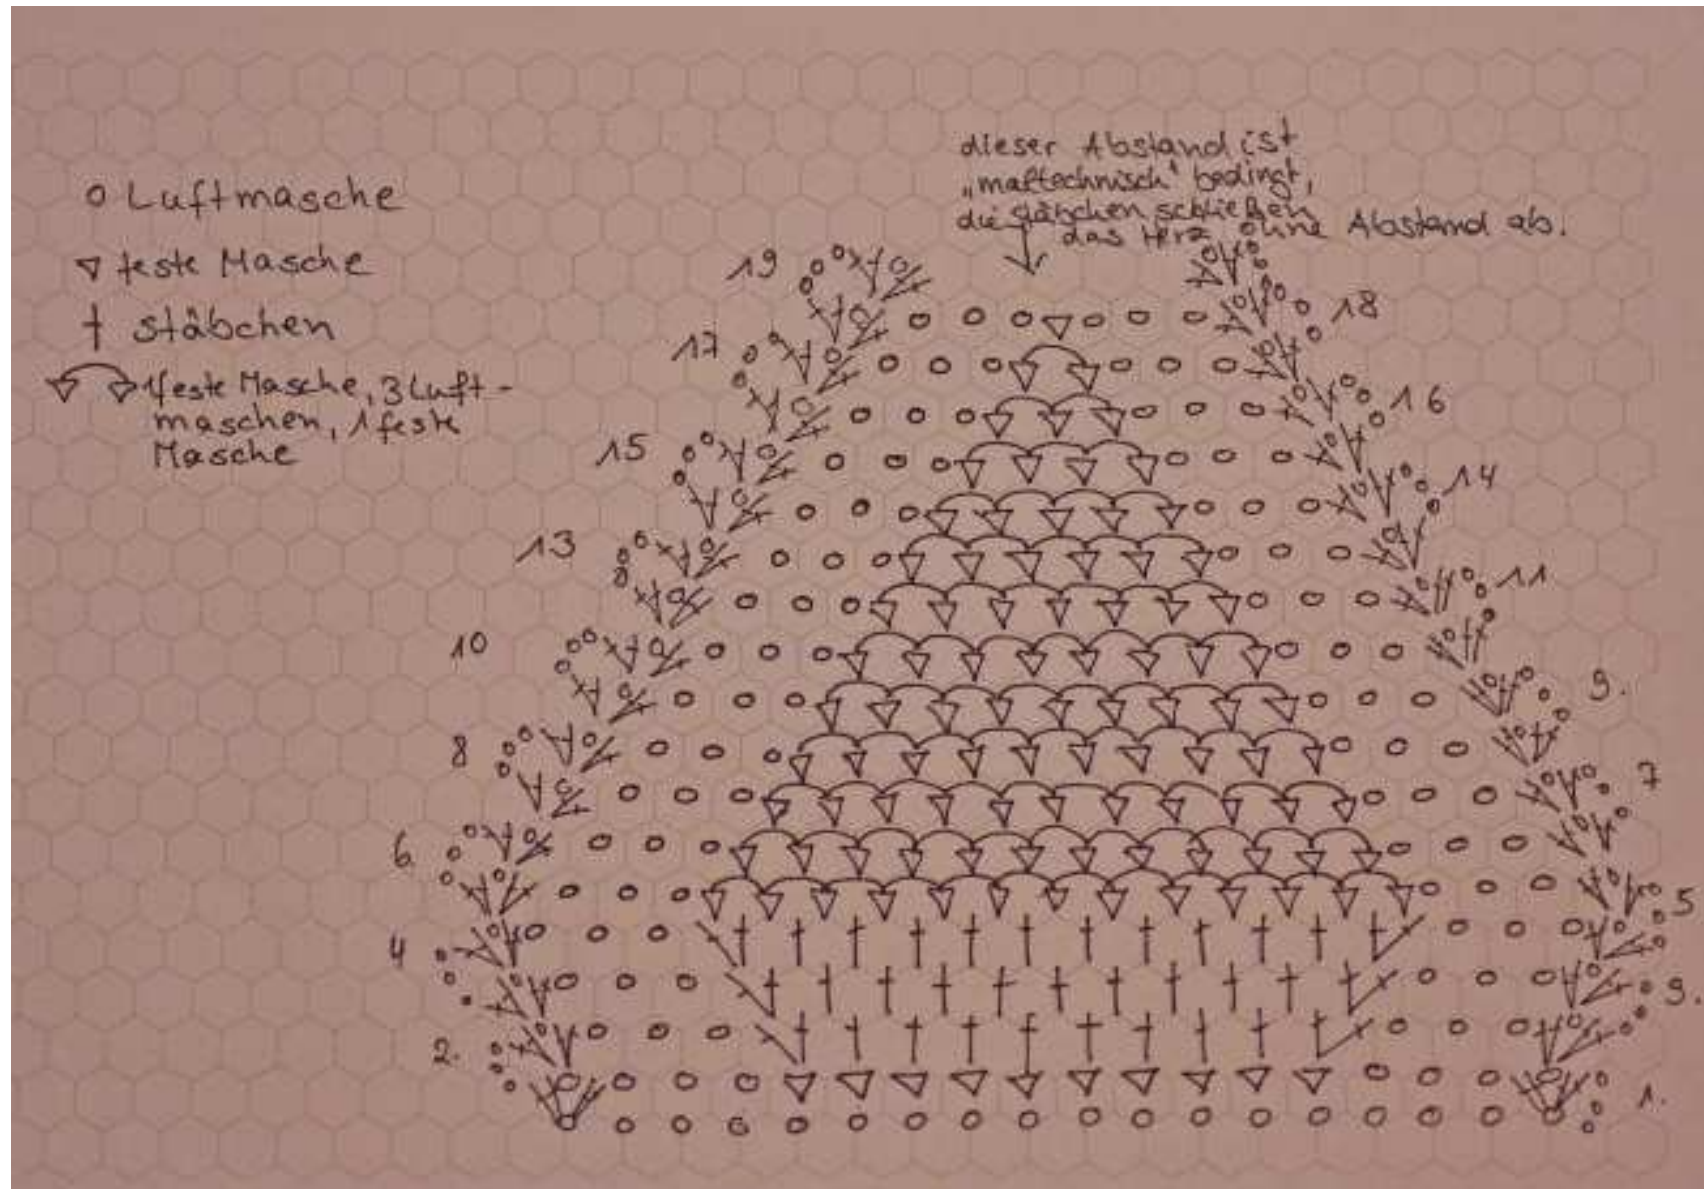 o Luftmasche
feste Masche
Stäbchen
1 feste Masche, 3 Luft-
maschen, 1 feste
Masche
dieser Abstand ist
„maltechnisch" bedingt,
die Stäbchen schließen
das Herz ohne Abstand ab.
19
18
17
16
15
14
13
11
10
9.
8
7
6.
5
4
3.
2.
1.